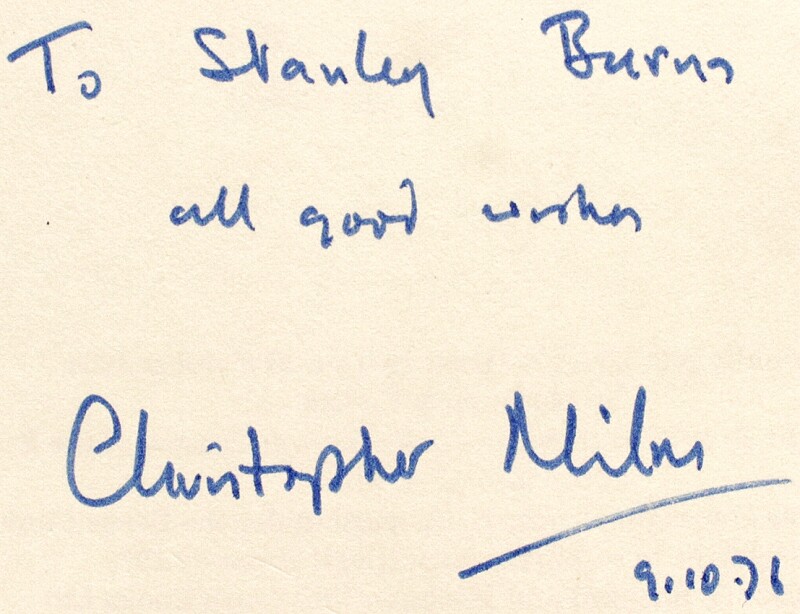 To Stanley Burns
all good wishes
Christopher Milne
9.10.76